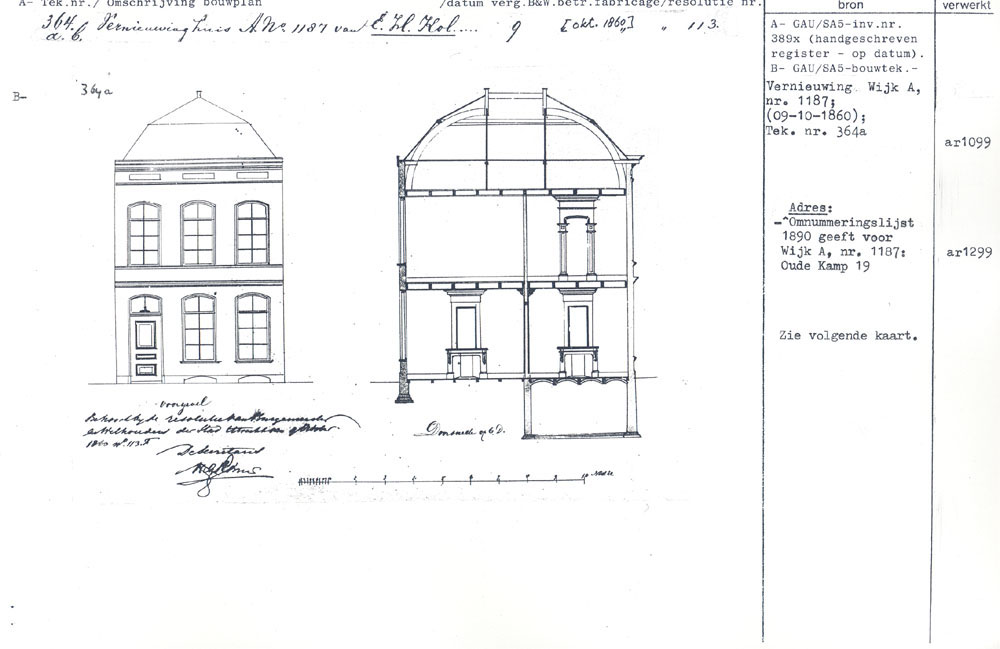 A- Tek.nr./ Omschrijving bouwplan /datum verg.B&W.betr.fabricage/resolutie nr.
364 Vernieuwing huis A. No. 1187 van E. H. Kol.... 9 [okt. 1860] " 113.
a. b.
B- 364a
voorgevel
Behoort bij de resolutie van Burgemeester
en Wethouders der Stad Utrecht van 9 October
1860 no. 113.F
De Secretaris
Doorsnede op C.D.
bron
A- GAU/SA5-inv.nr.
389x (handgeschreven
register - op datum).
B- GAU/SA5-bouwtek.-
Vernieuwing Wijk A,
nr. 1187;
(09-10-1860);
Tek. nr. 364a
Adres:
-^Omnummeringslijst
1890 geeft voor
Wijk A, nr. 1187:
Oude Kamp 19
Zie volgende kaart.
verwerkt
ar1099
ar1299